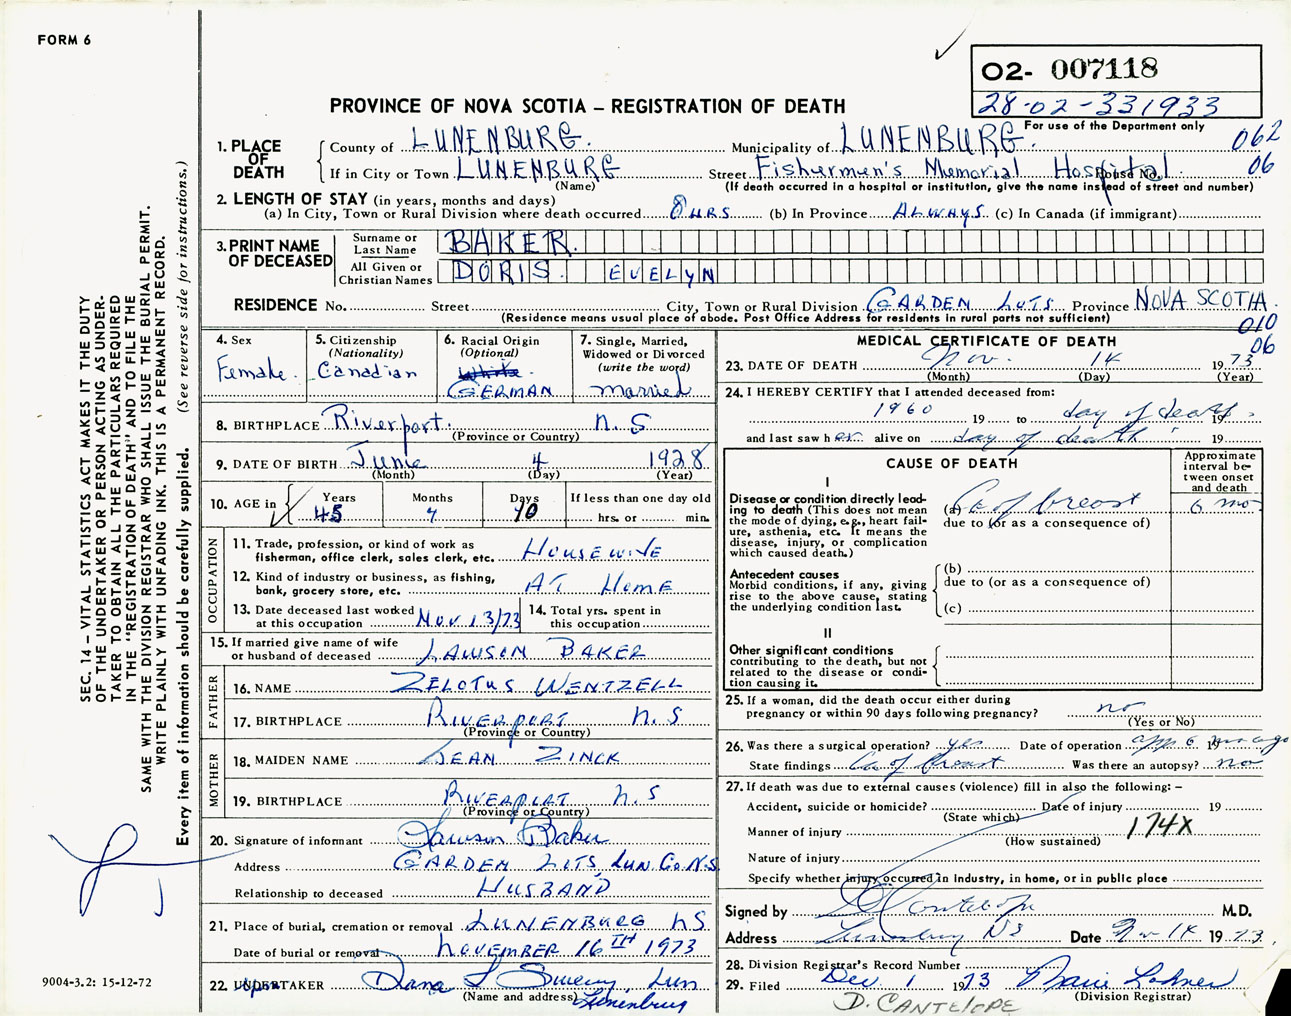 FORM 6
02- 007118
28-02-331933
For use of the Department only
PROVINCE OF NOVA SCOTIA – REGISTRATION OF DEATH
062
06
1. PLACE OF DEATH
County of LUNENBURG. Municipality of LUNENBURG.
If in City or Town LUNENBURG Street Fishermen's Memorial Hospital House No.
(Name) (If death occurred in a hospital or institution, give the name instead of street and number)
2. LENGTH OF STAY (in years, months and days)
(a) In City, Town or Rural Division where death occurred 8 HRS (b) In Province ALWAYS (c) In Canada (if immigrant)
3. PRINT NAME OF DECEASED
Surname or Last Name BAKER.
All Given or Christian Names DORIS. EVELYN
RESIDENCE No. Street City, Town or Rural Division GARDEN LOTS Province NOVA SCOTIA.
(Residence means usual place of abode. Post Office Address for residents in rural parts not sufficient)
010
06
4. Sex Female.
5. Citizenship (Nationality) Canadian
6. Racial Origin (Optional) White GERMAN
7. Single, Married, Widowed or Divorced (write the word) married
8. BIRTHPLACE Riverport. N.S
(Province or Country)
9. DATE OF BIRTH June 4 1928
(Month) (Day) (Year)
10. AGE in Years 45 Months Days 10 If less than one day old hrs. or min.
OCCUPATION
11. Trade, profession, or kind of work as fisherman, office clerk, sales clerk, etc. HOUSEWIFE
12. Kind of industry or business, as fishing, bank, grocery store, etc. AT HOME
13. Date deceased last worked at this occupation NOV 13/73
14. Total yrs. spent in this occupation
15. If married give name of wife or husband of deceased LAWSON BAKER
FATHER
16. NAME ZELOTUS WENTZELL
17. BIRTHPLACE RIVERPORT N.S
(Province or Country)
MOTHER
18. MAIDEN NAME JEAN ZINCK
19. BIRTHPLACE RIVERPORT N.S
(Province or Country)
20. Signature of informant Lawson Baker
Address GARDEN LOTS, LUN. CO. N.S
Relationship to deceased HUSBAND
21. Place of burial, cremation or removal LUNENBURG NS
Date of burial or removal NOVEMBER 16TH 1973
22. UNDERTAKER Dana L Sweeny, Lun
(Name and address) Lunenburg
MEDICAL CERTIFICATE OF DEATH
23. DATE OF DEATH Nov. 14 1973
(Month) (Day) (Year)
24. I HEREBY CERTIFY that I attended deceased from:
1960 19 to day of death 19
and last saw her alive on day of death 19
CAUSE OF DEATH
Approximate interval between onset and death
I
Disease or condition directly leading to death (This does not mean the mode of dying, e.g., heart failure, asthenia, etc. It means the disease, injury, or complication which caused death.)
(a) Ca of breast 6 mo
due to (or as a consequence of)
Antecedent causes
Morbid conditions, if any, giving rise to the above cause, stating the underlying condition last.
(b)
due to (or as a consequence of)
(c)
II
Other significant conditions
contributing to the death, but not related to the disease or condition causing it.
25. If a woman, did the death occur either during pregnancy or within 90 days following pregnancy? no
(Yes or No)
26. Was there a surgical operation? yes Date of operation app 6 mo ago 19
State findings Ca of breast Was there an autopsy? no
27. If death was due to external causes (violence) fill in also the following: –
Accident, suicide or homicide? Date of injury 19
(State which)
Manner of injury 174X
(How sustained)
Nature of injury
Specify whether injury occurred in industry, in home, or in public place
Signed by D Cantelope M.D.
Address Lunenburg NS Date Nov 14 1973.
28. Division Registrar's Record Number
29. Filed Dec. 1 1973 Lohnes
(Division Registrar)
D. CANTELOPE
SEC. 14 – VITAL STATISTICS ACT MAKES IT THE DUTY
OF THE UNDERTAKER OR PERSON ACTING AS UNDER-
TAKER TO OBTAIN ALL THE PARTICULARS REQUIRED
IN THE "REGISTRATION OF DEATH" AND TO FILE THE
SAME WITH THE DIVISION REGISTRAR WHO SHALL ISSUE THE BURIAL PERMIT.
WRITE PLAINLY WITH UNFADING INK. THIS IS A PERMANENT RECORD.
Every item of information should be carefully supplied. (See reverse side for instructions.)
9004-3.2: 15-12-72